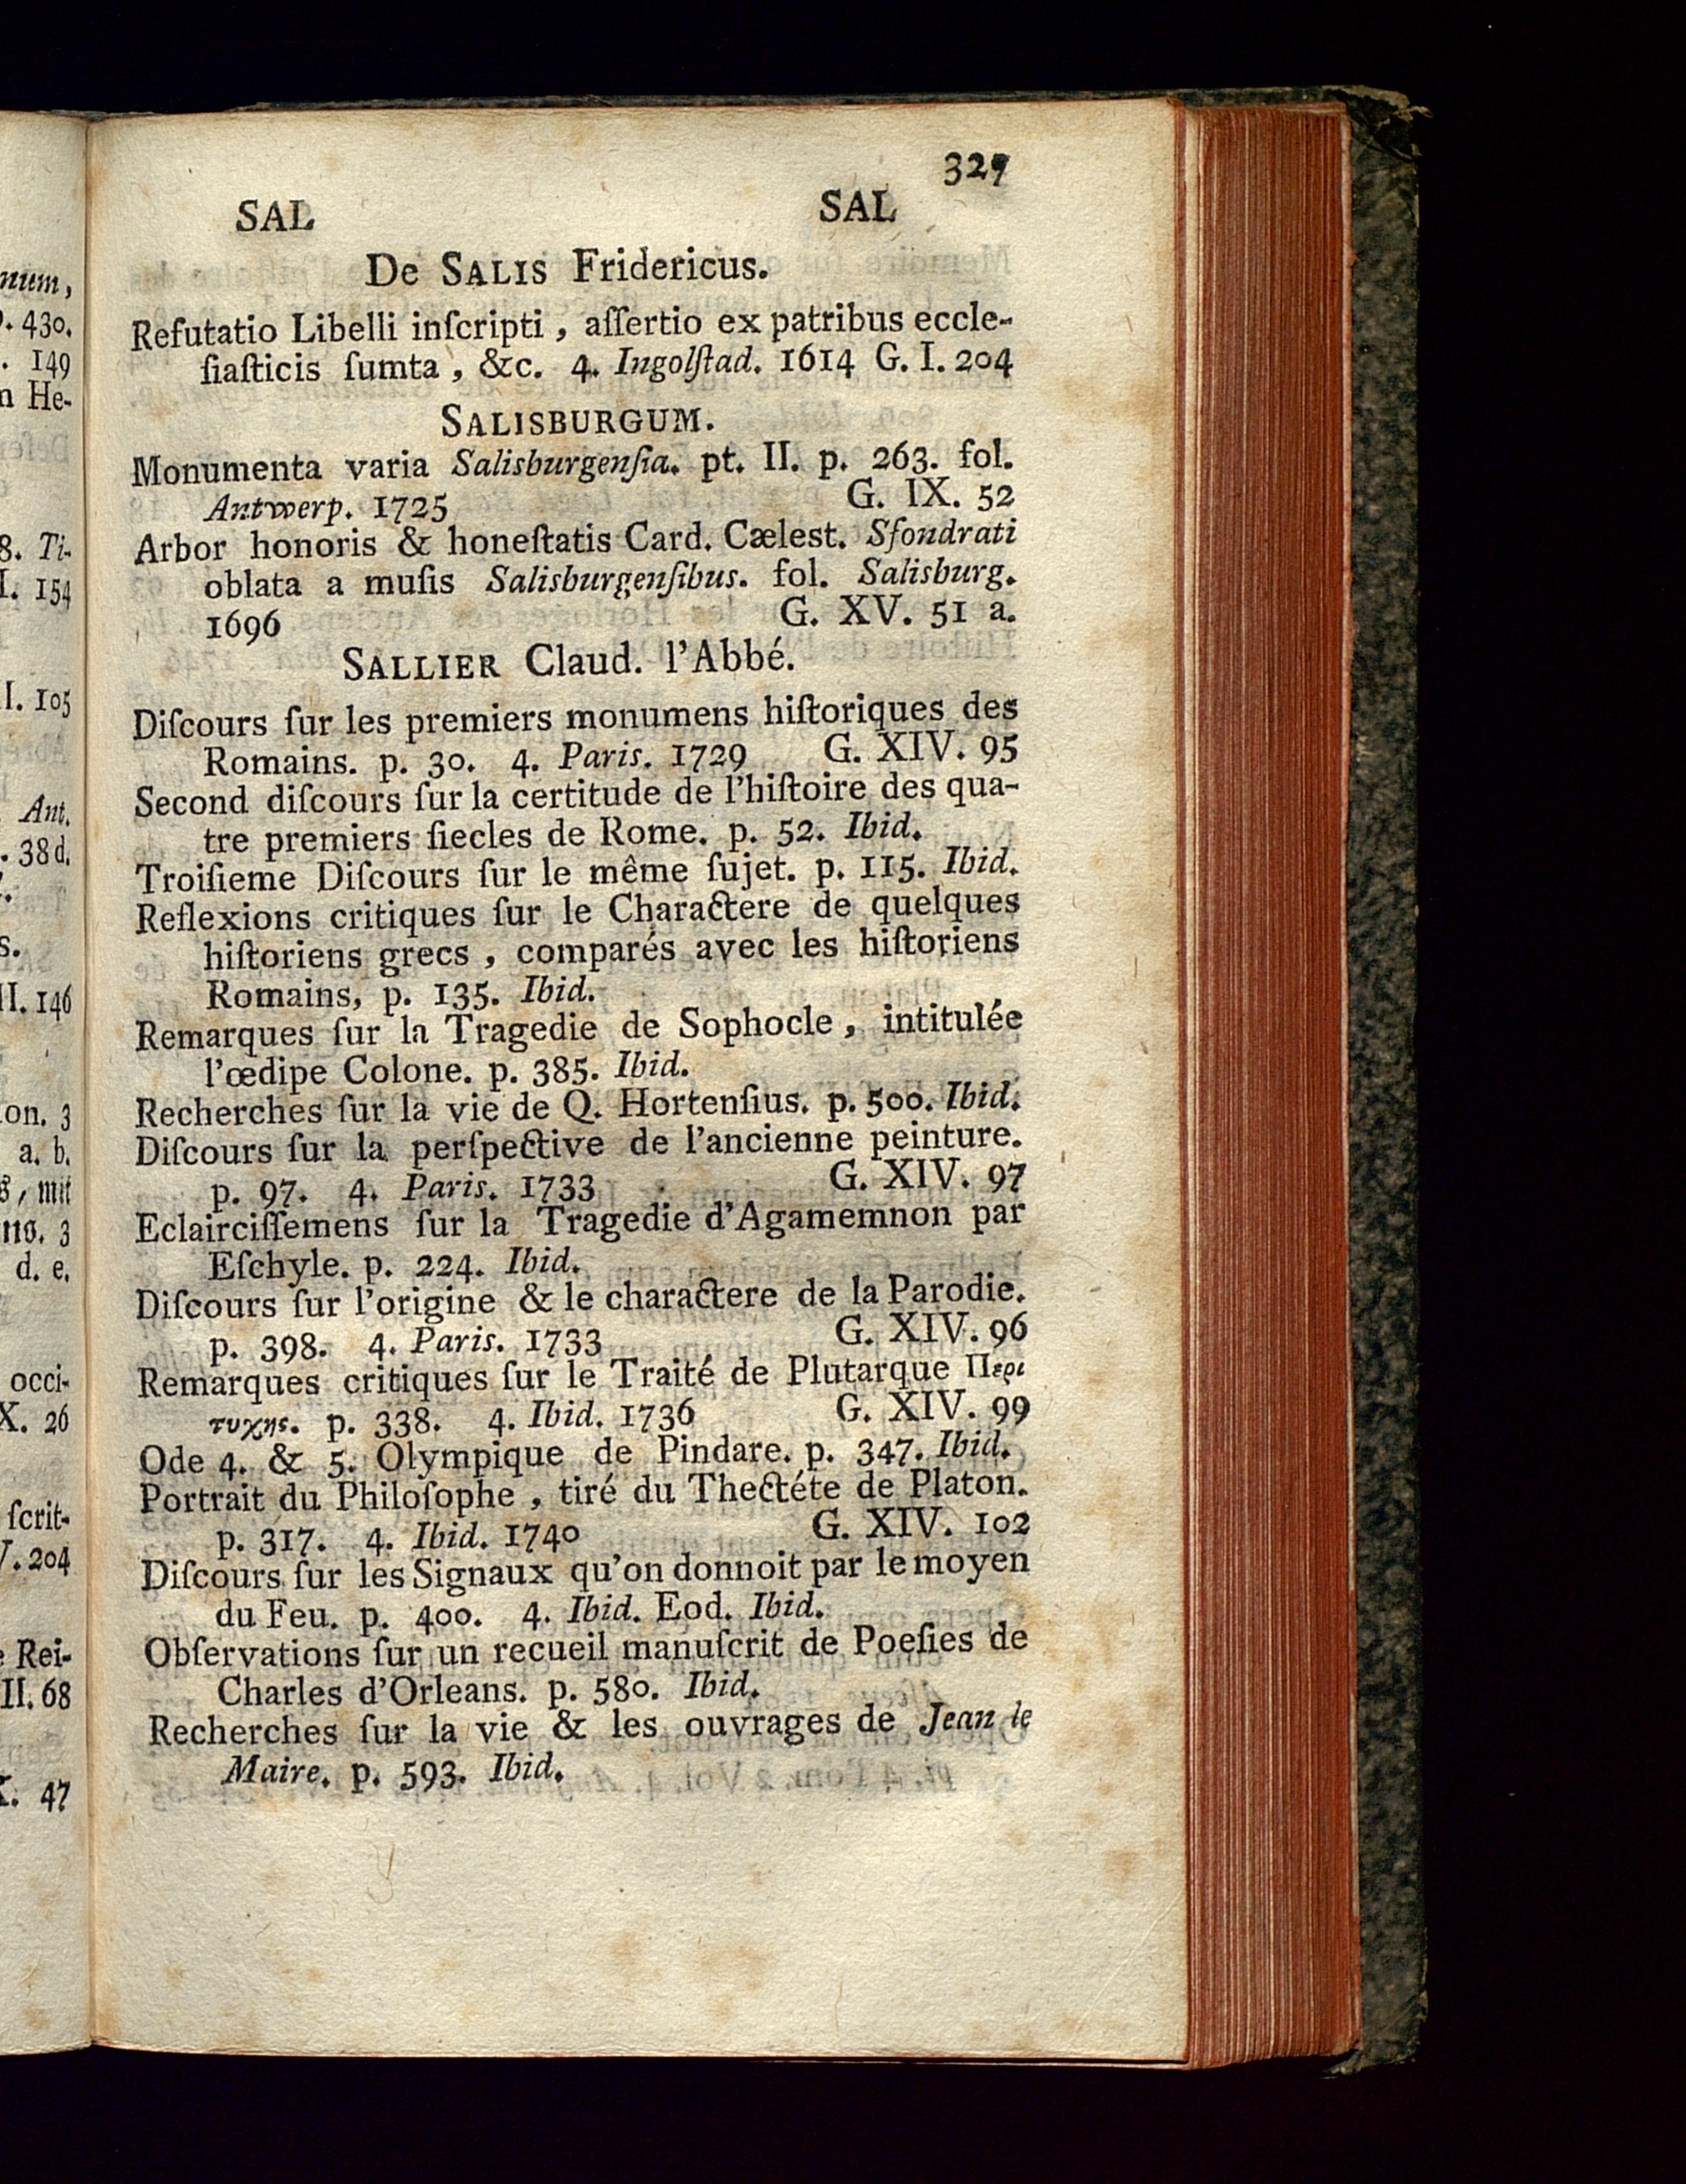 num,
. 430.
. 149
n He-
8. Ti-
I. 154
I. 105
Ant.
. 38d.
s.
II. 146
on. 3
a. b.
s, mit
no. 3
d. e.
occi-
X. 26
ſcrit-
V. 204
e Rei-
II. 68
X. 47
329
SAL SAL
De SALIS Fridericus.
Refutatio Libelli inſcripti , aſſertio ex patribus eccle-
ſiaſticis ſumta , &c. 4. Ingolſtad. 1614 G. I. 204
SALISBURGUM.
Monumenta varia Salisburgenſia. pt. II. p. 263. fol.
Antwerp. 1725 G. IX. 52
Arbor honoris & honeſtatis Card. Cælest. Sfondrati
oblata a muſis Salisburgenſibus. fol. Salisburg.
1696 G. XV. 51 a.
SALLIER Claud. l'Abbé.
Diſcours ſur les premiers monumens hiſtoriques des
Romains. p. 30. 4. Paris. 1729 G. XIV. 95
Second diſcours ſur la certitude de l'hiſtoire des qua-
tre premiers ſiecles de Rome. p. 52. Ibid.
Troiſieme Diſcours ſur le même ſujet. p. 115. Ibid.
Reflexions critiques ſur le Charactere de quelques
hiſtoriens grecs , comparés avec les hiſtoriens
Romains, p. 135. Ibid.
Remarques ſur la Tragedie de Sophocle , intitulée
l'œdipe Colone. p. 385. Ibid.
Recherches ſur la vie de Q. Hortenſius. p. 500. Ibid.
Diſcours ſur la perſpective de l'ancienne peinture.
p. 97. 4. Paris. 1733 G. XIV. 97
Eclairciſſemens ſur la Tragedie d'Agamemnon par
Eſchyle. p. 224. Ibid.
Diſcours ſur l'origine & le charactere de la Parodie.
p. 398. 4. Paris. 1733 G. XIV. 96
Remarques critiques ſur le Traité de Plutarque Περι
τυχης. p. 338. 4. Ibid. 1736 G. XIV. 99
Ode 4. & 5. Olympique de Pindare. p. 347. Ibid.
Portrait du Philoſophe , tiré du Thectéte de Platon.
p. 317. 4. Ibid. 1740 G. XIV. 102
Diſcours ſur les Signaux qu'on donnoit par le moyen
du Feu. p. 400. 4. Ibid. Eod. Ibid.
Obſervations ſur un recueil manuſcrit de Poeſies de
Charles d'Orleans. p. 580. Ibid.
Recherches ſur la vie & les ouvrages de Jean le
Maire. p. 593. Ibid.